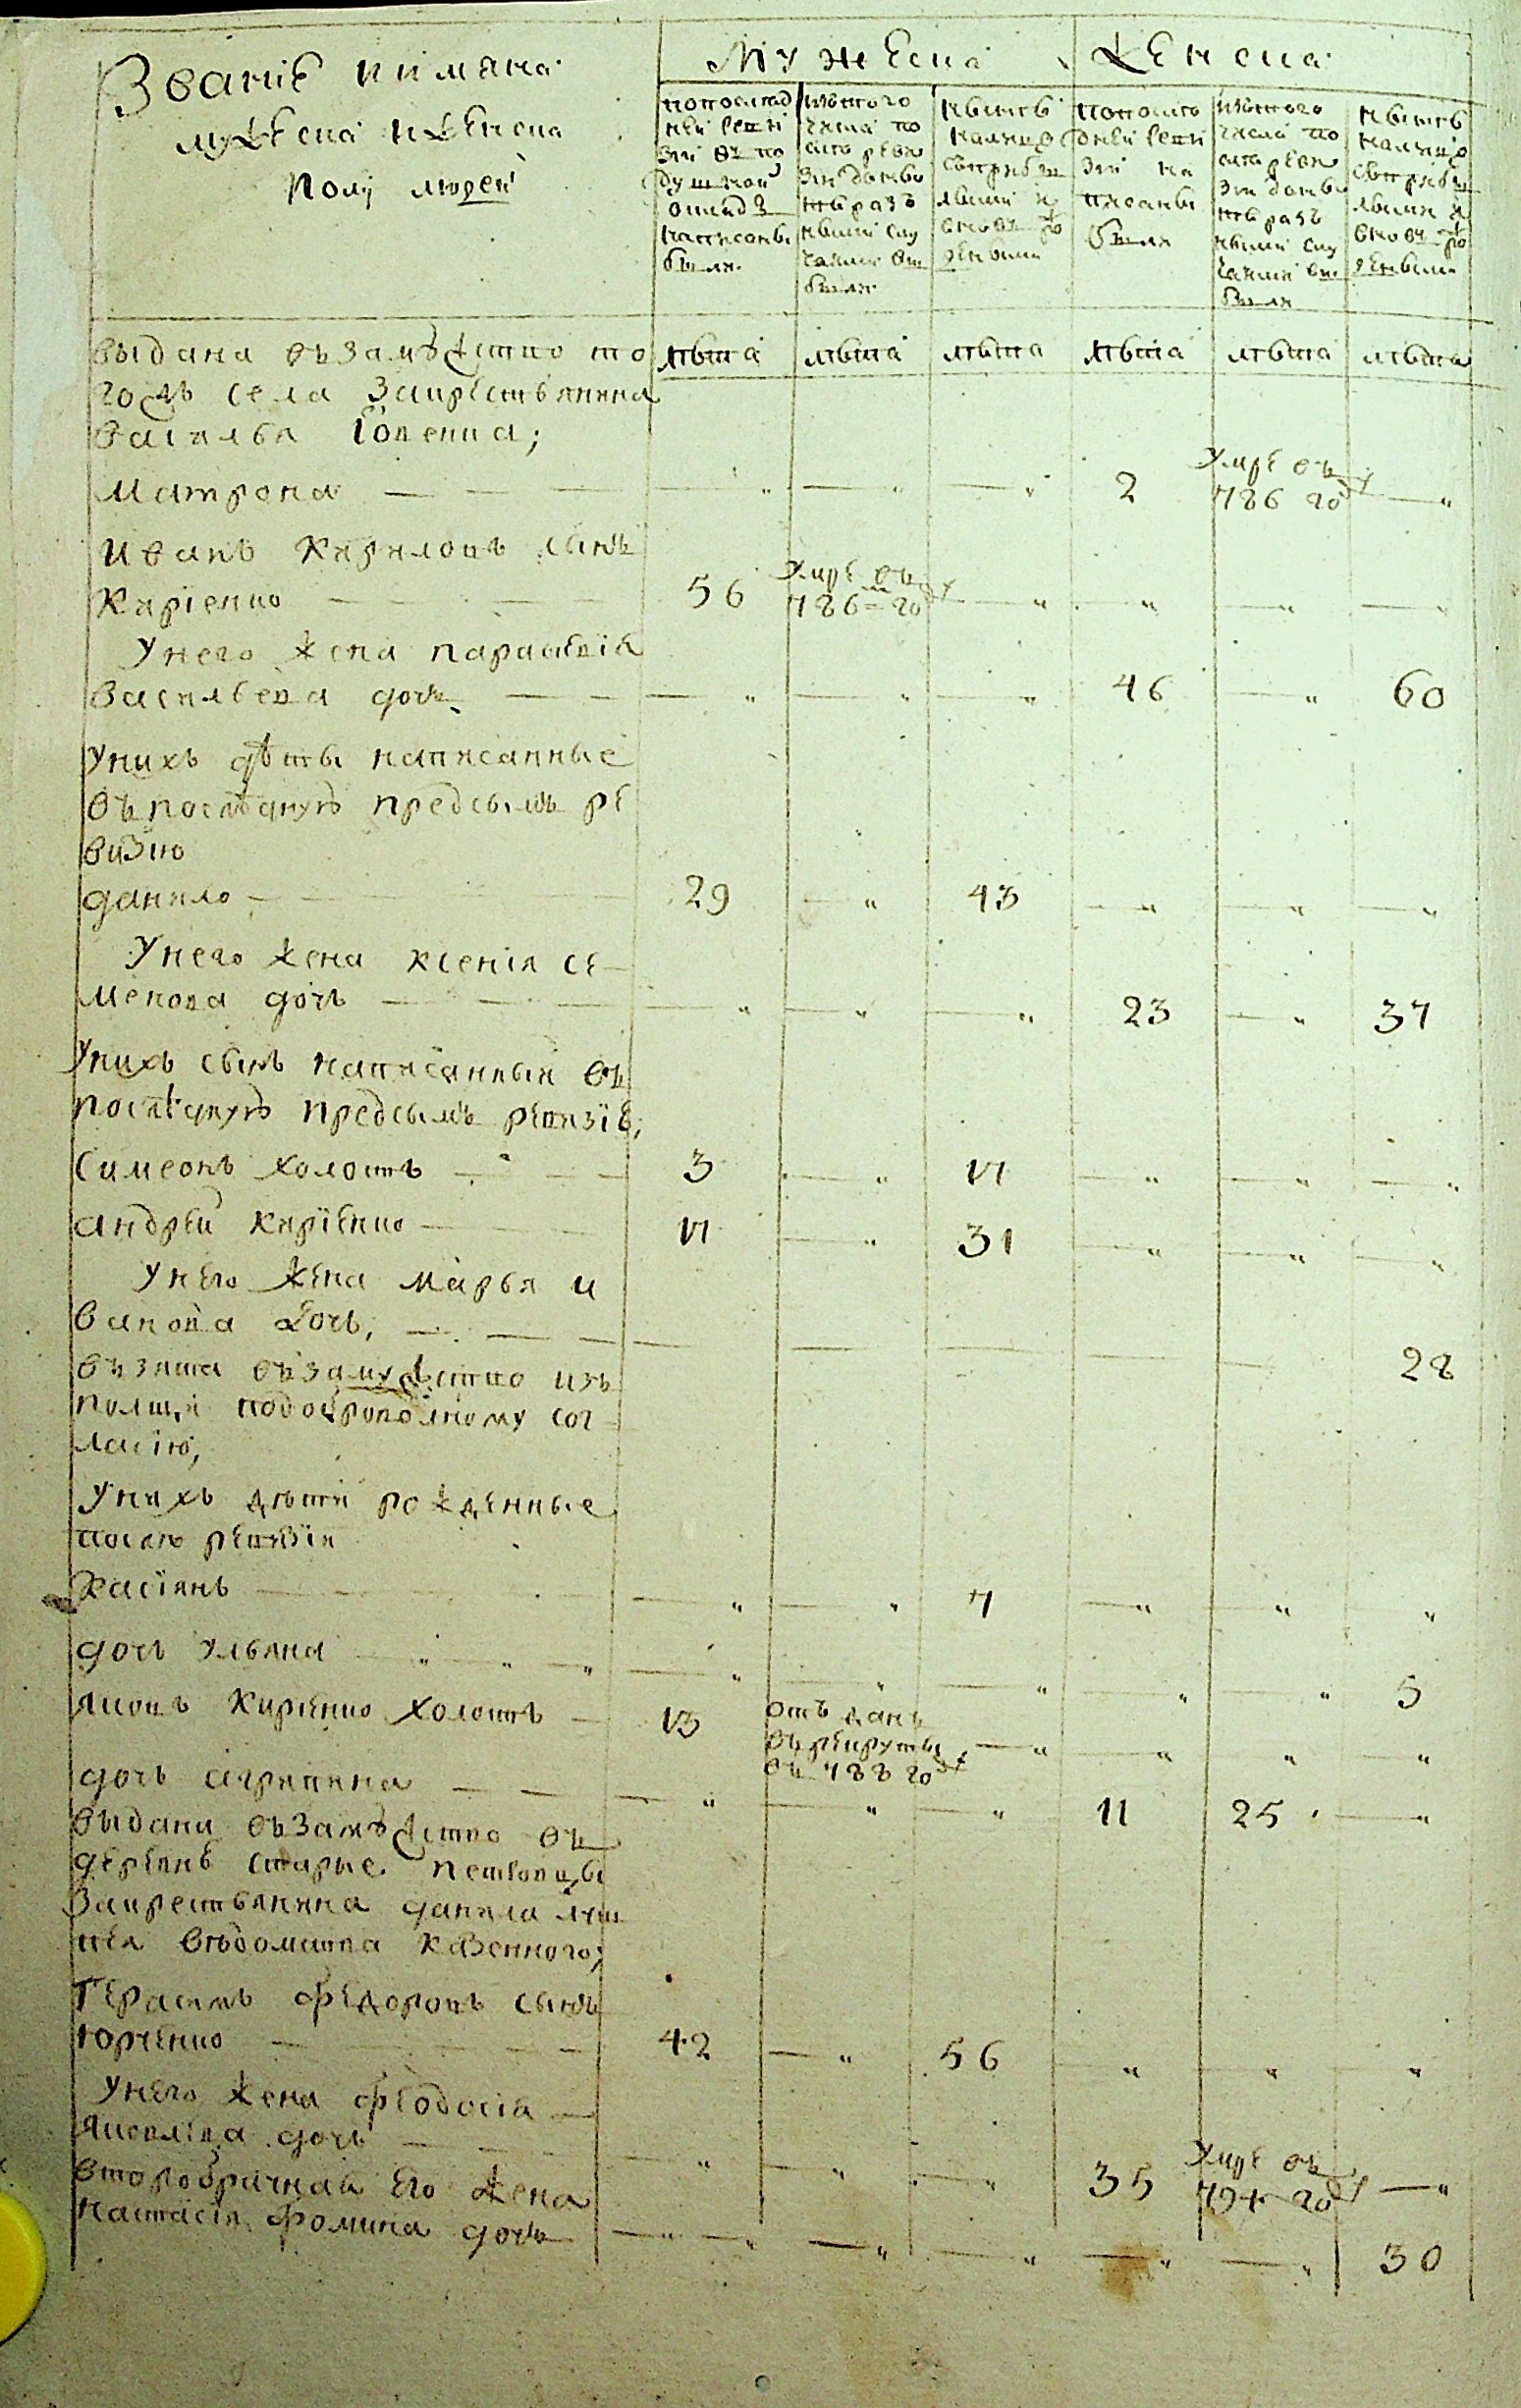 Званіе и имяна
мужеска и женска
полу людей
Мужеска
Женска
по послед
ней реви
зіи въ по
душной
окладъ
написаны
были
изъ того
числа по
слѣ реви
зіи до ны
нѣ разъ
ными слу
чаями вы
были
нынѣ
налицо
съ прибы
лыми и
вновь ро
жденными
по послѣ
дней реви
зіи на
писаны
были
изъ того
числа по
слѣ реви
зіи до ны
нѣ разъ
ными слу
чаями вы
были
нынѣ
налицо
съ прибы
лыми и
вновь ро
жденными
выдана въ замужство то
гожъ села за крестьянина
Василья
лѣта лѣта лѣта лѣта лѣта лѣта
Матрона — — — — „ — „ — „ 2 умре въ 786 году — „
Иванъ Кириловъ сынъ
Киріенко — — 56 умре въ 786 году — „ — „ — „ — „
У него жена Параскевія
Васильева дочь — — — „ — „ — „ 46 — „ 60
У нихъ дѣти написанные
въ последнюю предъ симъ ре
визію
Данило — — 29 — „ 43 — „ — „ — „
У него жена Ксенія Се
менова дочь — — — — „ — „ — „ 23 — „ 37
У нихъ сынъ написанный въ
последнюю предъ симъ ревизіе;
Симеонъ холостъ — — — 3 — „ 17 — „ — „ — „
Андрей Киріенко — — 17 — „ 31 — „ — „ — „
У него жена Марья И
ванова дочь, — — — — — — — — 28
въ зята въ замужство изъ
Полши по добровольному сог
ласію,
У нихъ дѣти рожденные
послѣ ревизіи
Касіянъ — — — „ — „ 7 — „ — „ „
дочь Ульяна — „ „ „ — „ — „ — „ — „ — „ 5
Яковъ Киріенко холостъ — 13 отъ данъ въ рекруты въ 788 году — „ — „ „ „
дочь Агрипина — — — „ — „ — „ 11 25 — „
выдана въ замужство въ
деревнѣ старые
за крестьянина Данила
вѣдомства казенного;
Герасимъ Федоровъ сынъ
Юрченко — — — 42 — „ 56 „ „ „
У него жена Феодосія —
Яковлева дочь — — — „ — „ — „ 35 умре въ 794 году — „
второбрачная его жена
Настасія Фомина дочь — „ — „ — „ — „ — „ — „ 30